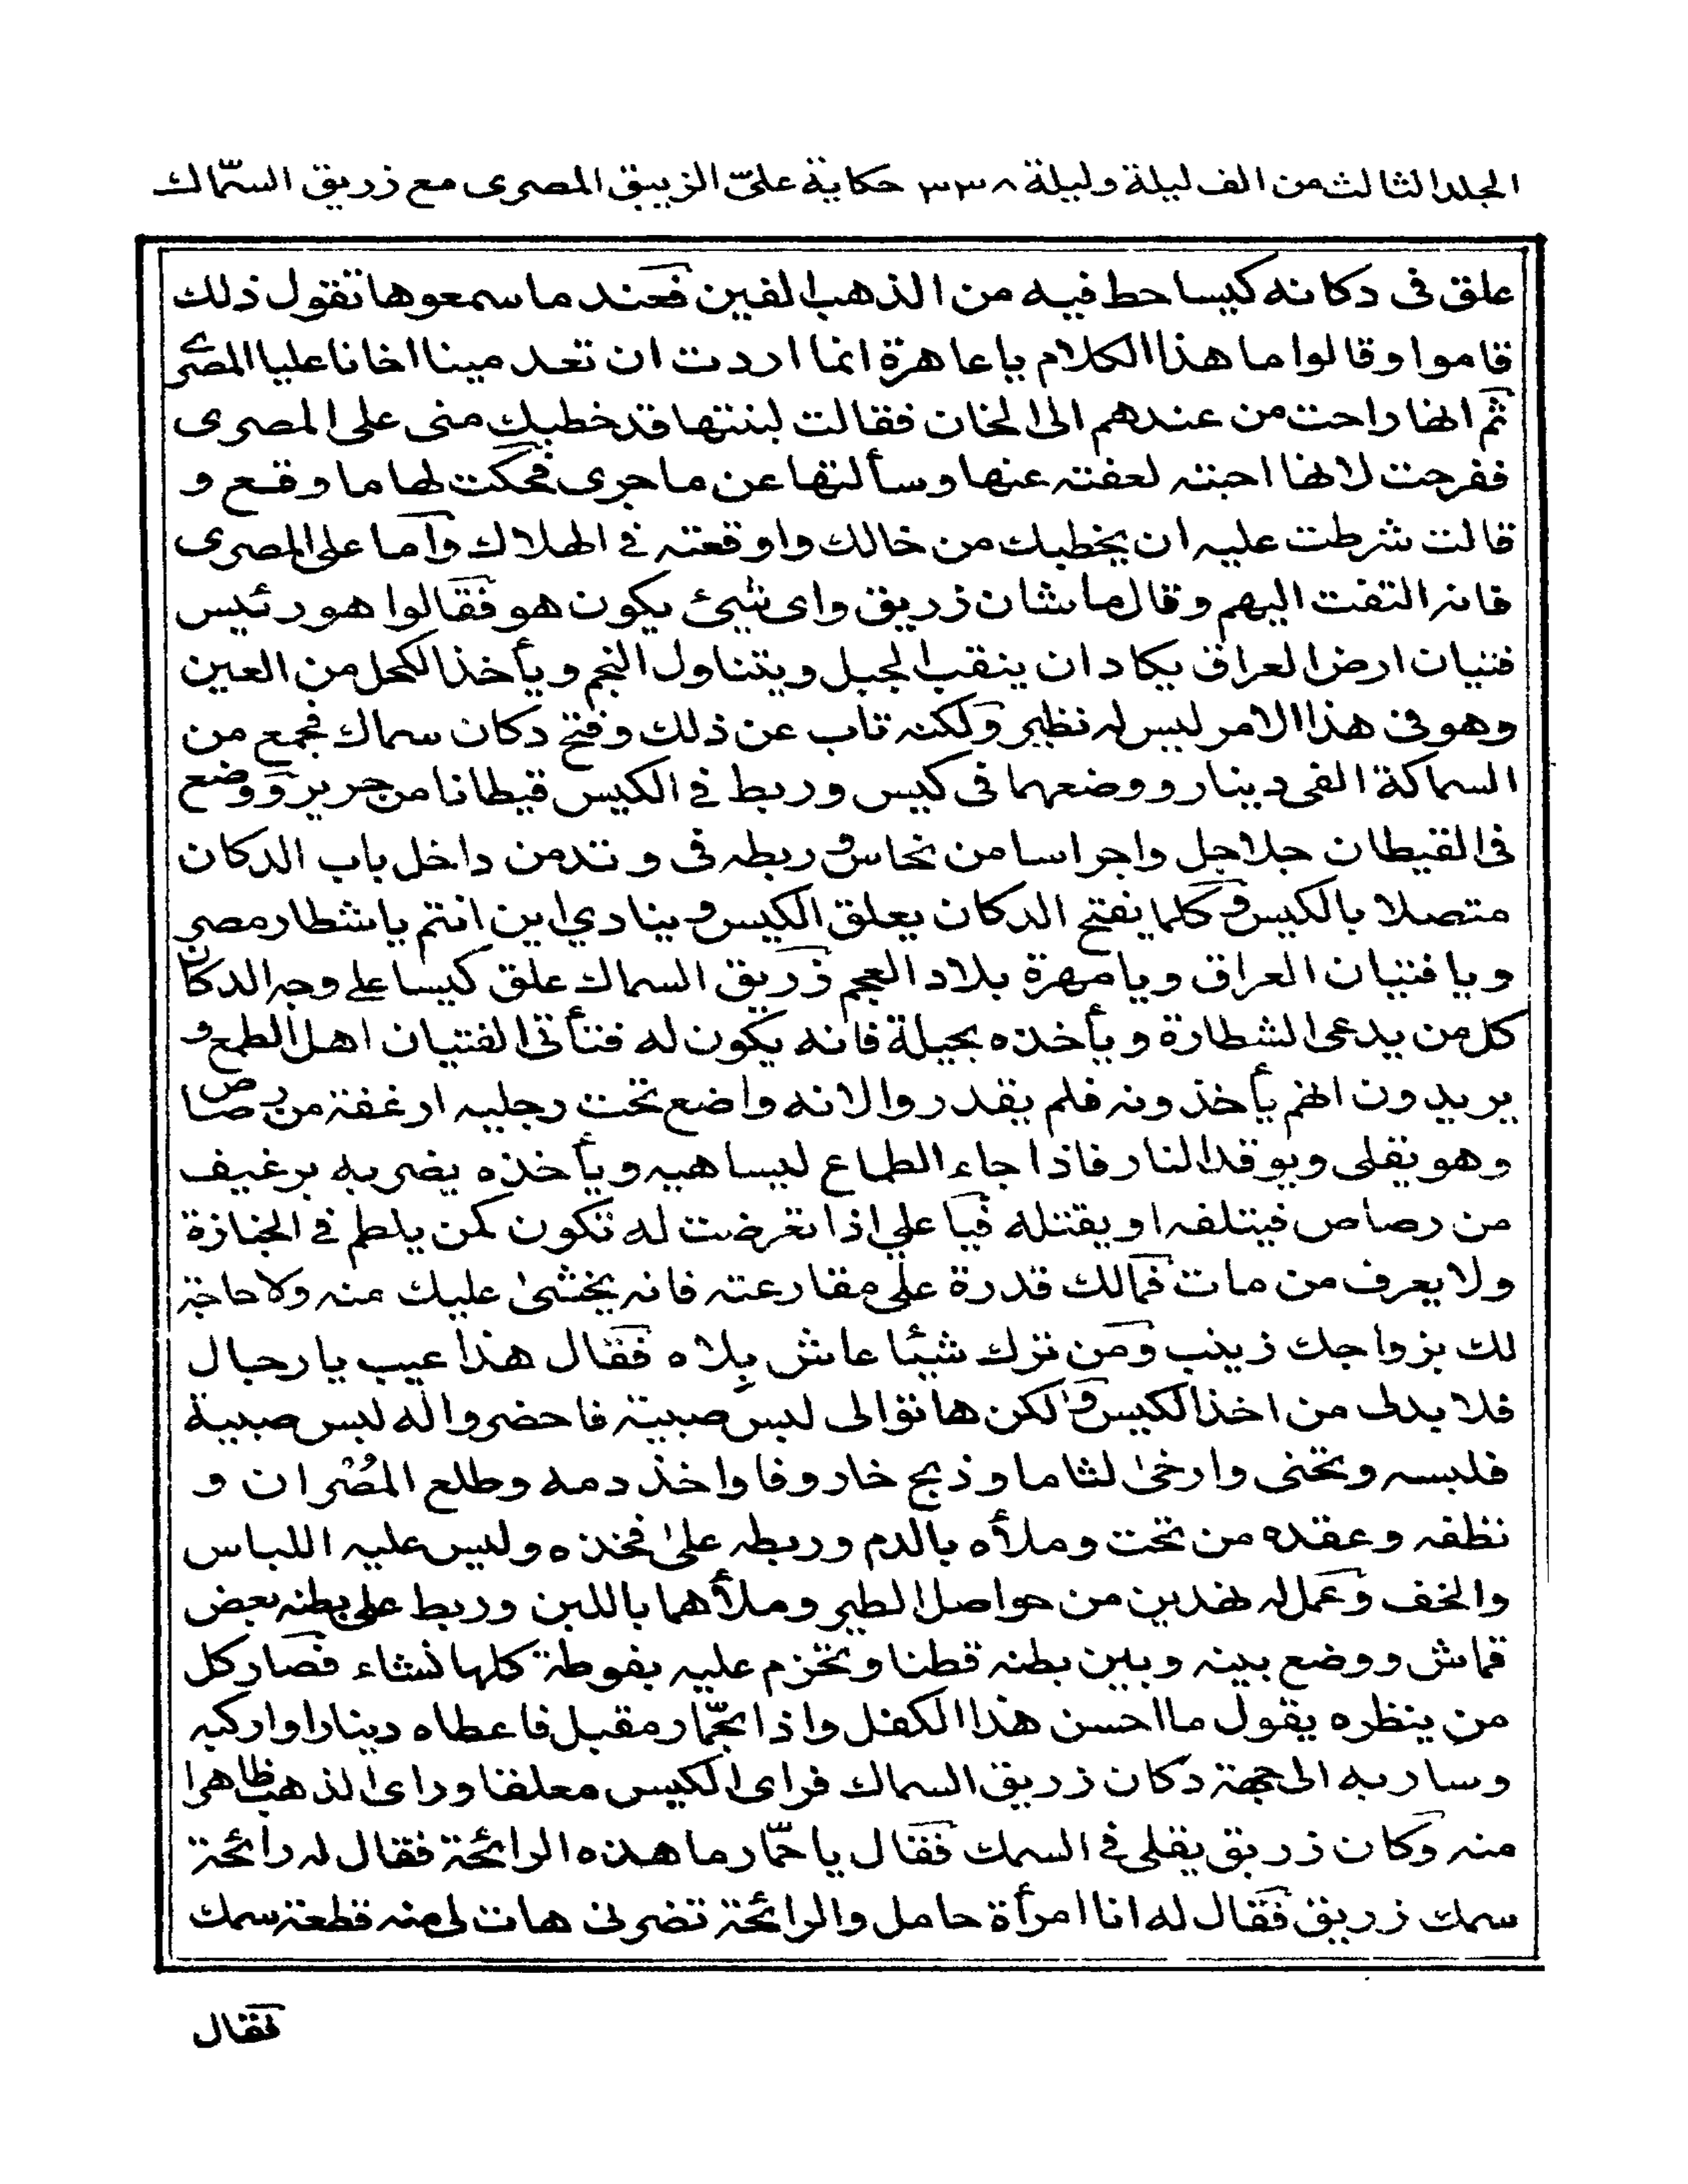 المجلد الثالث من الف ليلة وليلة ٣٣٨ حكاية علىّ الزيبق المصرى مع زريق السمّاك
علق فى دكانه كيسا حط فيه من الذهب الفين فعند ما سمعوها تقول ذلك
قاموا وقالوا ما هذا الكلام يا عاهرة انما اردت ان تعدمينا اخانا عليا المصرى
ثم انها راحت من عندهم الى الخان فقالت لبنتها قد خطبك منى على المصرى
ففرحت لانها احبته لعفته عنها وسألتها عن ما جرى فحكت لها ما وقع و
قالت شرطت عليه ان يخطبك من خالك واوقعته فى الهلاك واما على المصرى
فانه التفت اليهم وقال ما شان زريق واى شيئ يكون هو فقالوا هو رئيس
فتيان ارض العراق يكاد ان ينقب الجبل ويتناول النجم ويأخذ الكحل من العين
وهو فى هذا الامر ليس له نظير ولكنه تاب عن ذلك وفتح دكان سماك فجمع من
السماكة الفى دينار ووضعهما فى كيس وربط فى الكيس قيطانا من حرير ووضع
فى القيطان جلاجل واجراسا من نحاس وربطه فى وتد من داخل باب الدكان
متصلا بالكيس وكلما يفتح الدكان يعلق الكيس وينادي اين انتم يا شطار مصر
ويا فتيان العراق ويا مهرة بلاد العجم زريق السماك علق كيسا على وجه الدكان
كل من يدعى الشطارة ويأخذه بحيلة فانه يكون له فتأتى الفتيان اهل الطمع و
يريدون انهم يأخذونه فلم يقدروا لانه واضع تحت رجليه ارغفة من رصاص
وهو يقلى ويوقد النار فاذا جاء الطماع ليساهيه ويأخذه يضربه برغيف
من رصاص فيتلفه او يقتله فيا علي اذا تعرضت له تكون كمن يلطم فى الجنازة
ولا يعرف من مات فمالك قدرة على مقارعته فانه يخشىٰ عليك منه ولا حاجة
لك بزواجك زينب ومن ترك شيئا عاش بِلاه فقال هذا عيب يا رجال
فلا بد لى من اخذ الكيس ولٰكن هاتوا لى لبس صبية فاحضروا له لبس صبية
فلبسه وتحنى وارخىٰ لثاما وذبح خاروفا واخذ دمه وطلع المُصْران و
نظفه وعقده من تحت وملأه بالدم وربطه علىٰ فخذه ولبس عليه اللباس
والخف وعمل له نهدين من حواصل الطير وملأهما باللبن وربط على بطنه بعض
قماش ووضع بينه وبين بطنه قطنا وتحزم عليه بفوطة كلها نشاء فصار كل
من ينظره يقول ما احسن هذا الكفل واذا بحمّار مقبل فاعطاه دينارا واركبه
وسار به الى جهة دكان زريق السماك فراى الكيس معلقا وراى الذهب ظاهرا
منه وكان زريق يقلى فى السمك فقال يا حمّار ما هذه الرائحة فقال له رائحة
سمك زريق فقال له انا امرأة حامل والرائحة تضرنى هات لى منه قطعة سمك
فقال